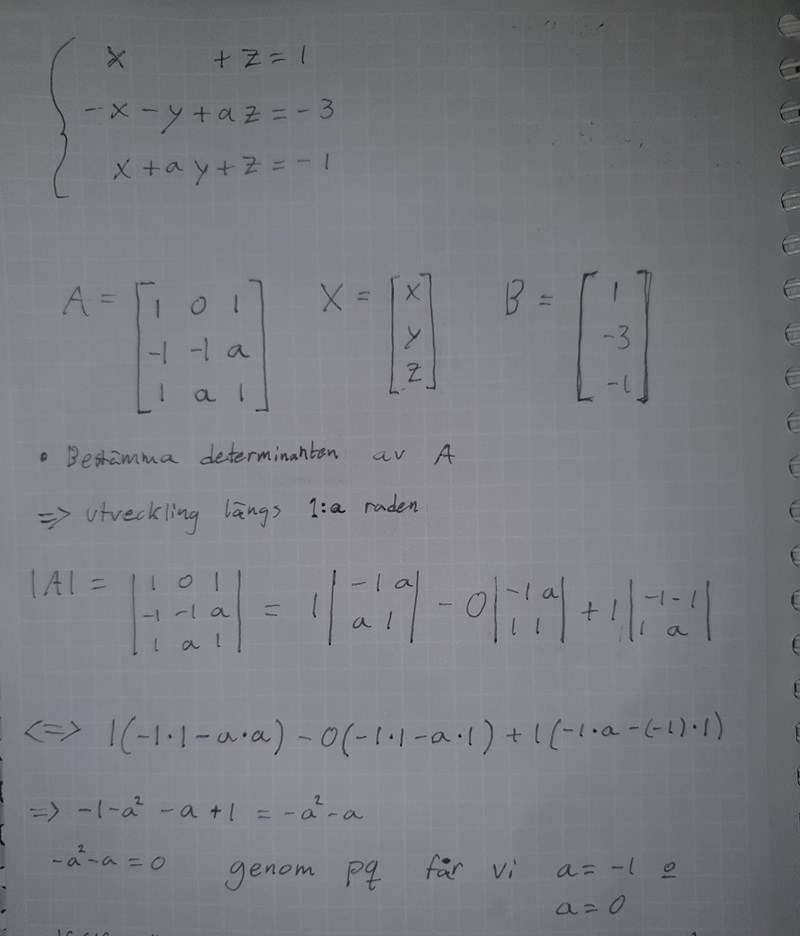 x + z = 1
-x - y + a z = -3
x + a y + z = -1
A = [1 0 1 X = [x B = [1
-1 -1 a y -3
1 a 1] z] -1]
• Bestämma determinanten av A
=> utveckling längs 1:a raden
|A| = |1 0 1 = 1|-1 a| - 0|-1 a| + 1|-1 -1|
-1 -1 a a 1 1 1 1 a
1 a 1|
<=> 1(-1·1-a·a) - 0(-1·1-a·1) + 1(-1·a-(-1)·1)
=> -1-a² -a +1 = -a²-a
-a²-a = 0 genom pq får vi a = -1 o
a = 0